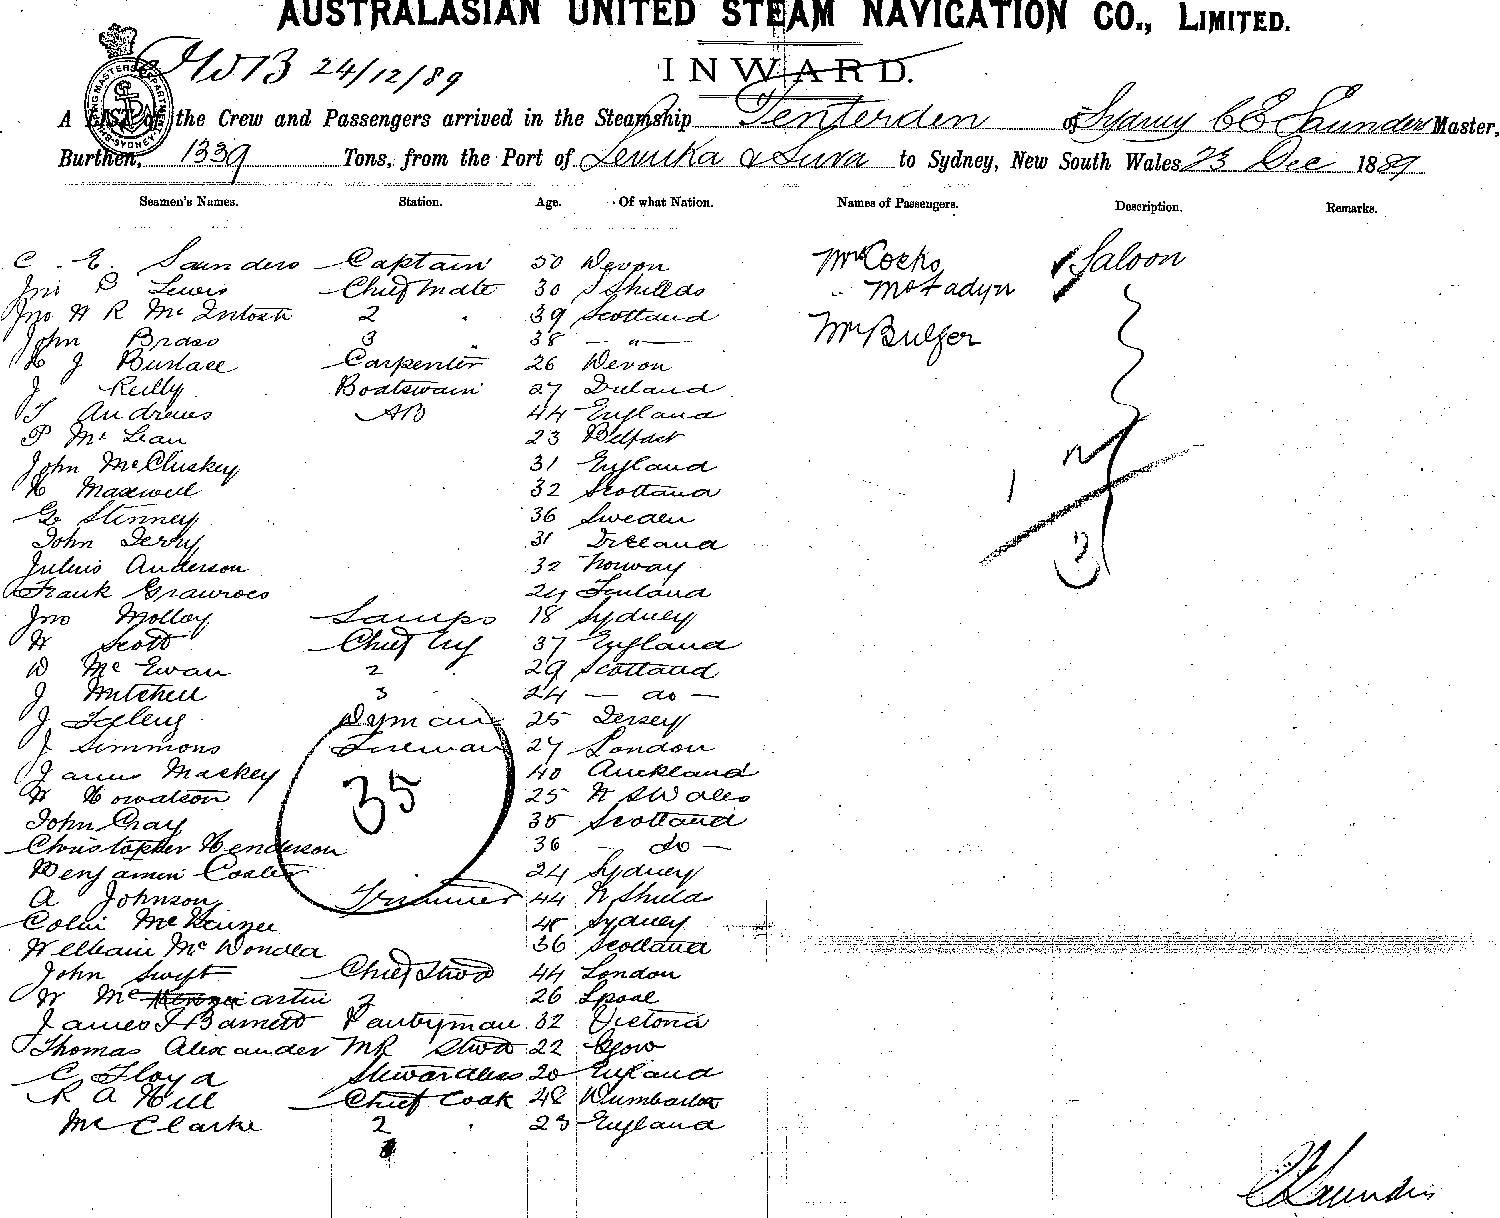 AUSTRALASIAN UNITED STEAM NAVIGATION CO., LIMITED.
24/12/89
INWARD.
A LIST of the Crew and Passengers arrived in the Steamship Tenterden of Sydney C E Saunders Master,
Burthen, 1339 Tons, from the Port of Levuka & Suva to Sydney, New South Wales 23 Dec 1889
Seamen's Names. Station. Age. Of what Nation. Names of Passengers. Description. Remarks.
C. E. Saunders Captain 50 Devon Mr Cocks Saloon
Jno Lewis Chief Mate 30 S Shields " McFadyn
Jno H R McIntosh 2 " 39 Scotland Mr Bulfer
John Brass 3 " 38 — " —
H J Burlace Carpenter 26 Devon
J Reilly Boatswain 27 Ireland
T Andrews AB 44 England
P McLean 23 Belfast
John McCluskey 31 England
H Maxwell 32 Scotland
G Stenney 36 Sweden
John Derry 31 Ireland
Julius Anderson 32 Norway
Frank 24 Finland
Jno Molloy Lamps 18 Sydney
W Scott Chief 37 England
D McEwan 2 " 29 Scotland
J Mitchell 3 24 — do —
J 25 Jersey
J Simmons Fireman 27 London
James Mackey 40 Auckland
W Howatson 25 N S Wales
John Gray 35 Scotland
Christopher Henderson 36 — do —
Benjamin Coster 24 Sydney
A Johnson Trimmer 44 N Shields
Colin McKenzie Sydney
William McDonald 36 Scotland
John Swift Chief Stwd 44 London
W McKenzie artin 2 26 Lpool
James F Barnett Pantryman 32 Victoria
Thomas Alexander MR Stwd 22 Glgow
C Floyd Stewardess 20 England
R A Hill Chief Cook 48 Dumbarton
McClarke 2 " 23 England
35
1
2
3
C E Saunders